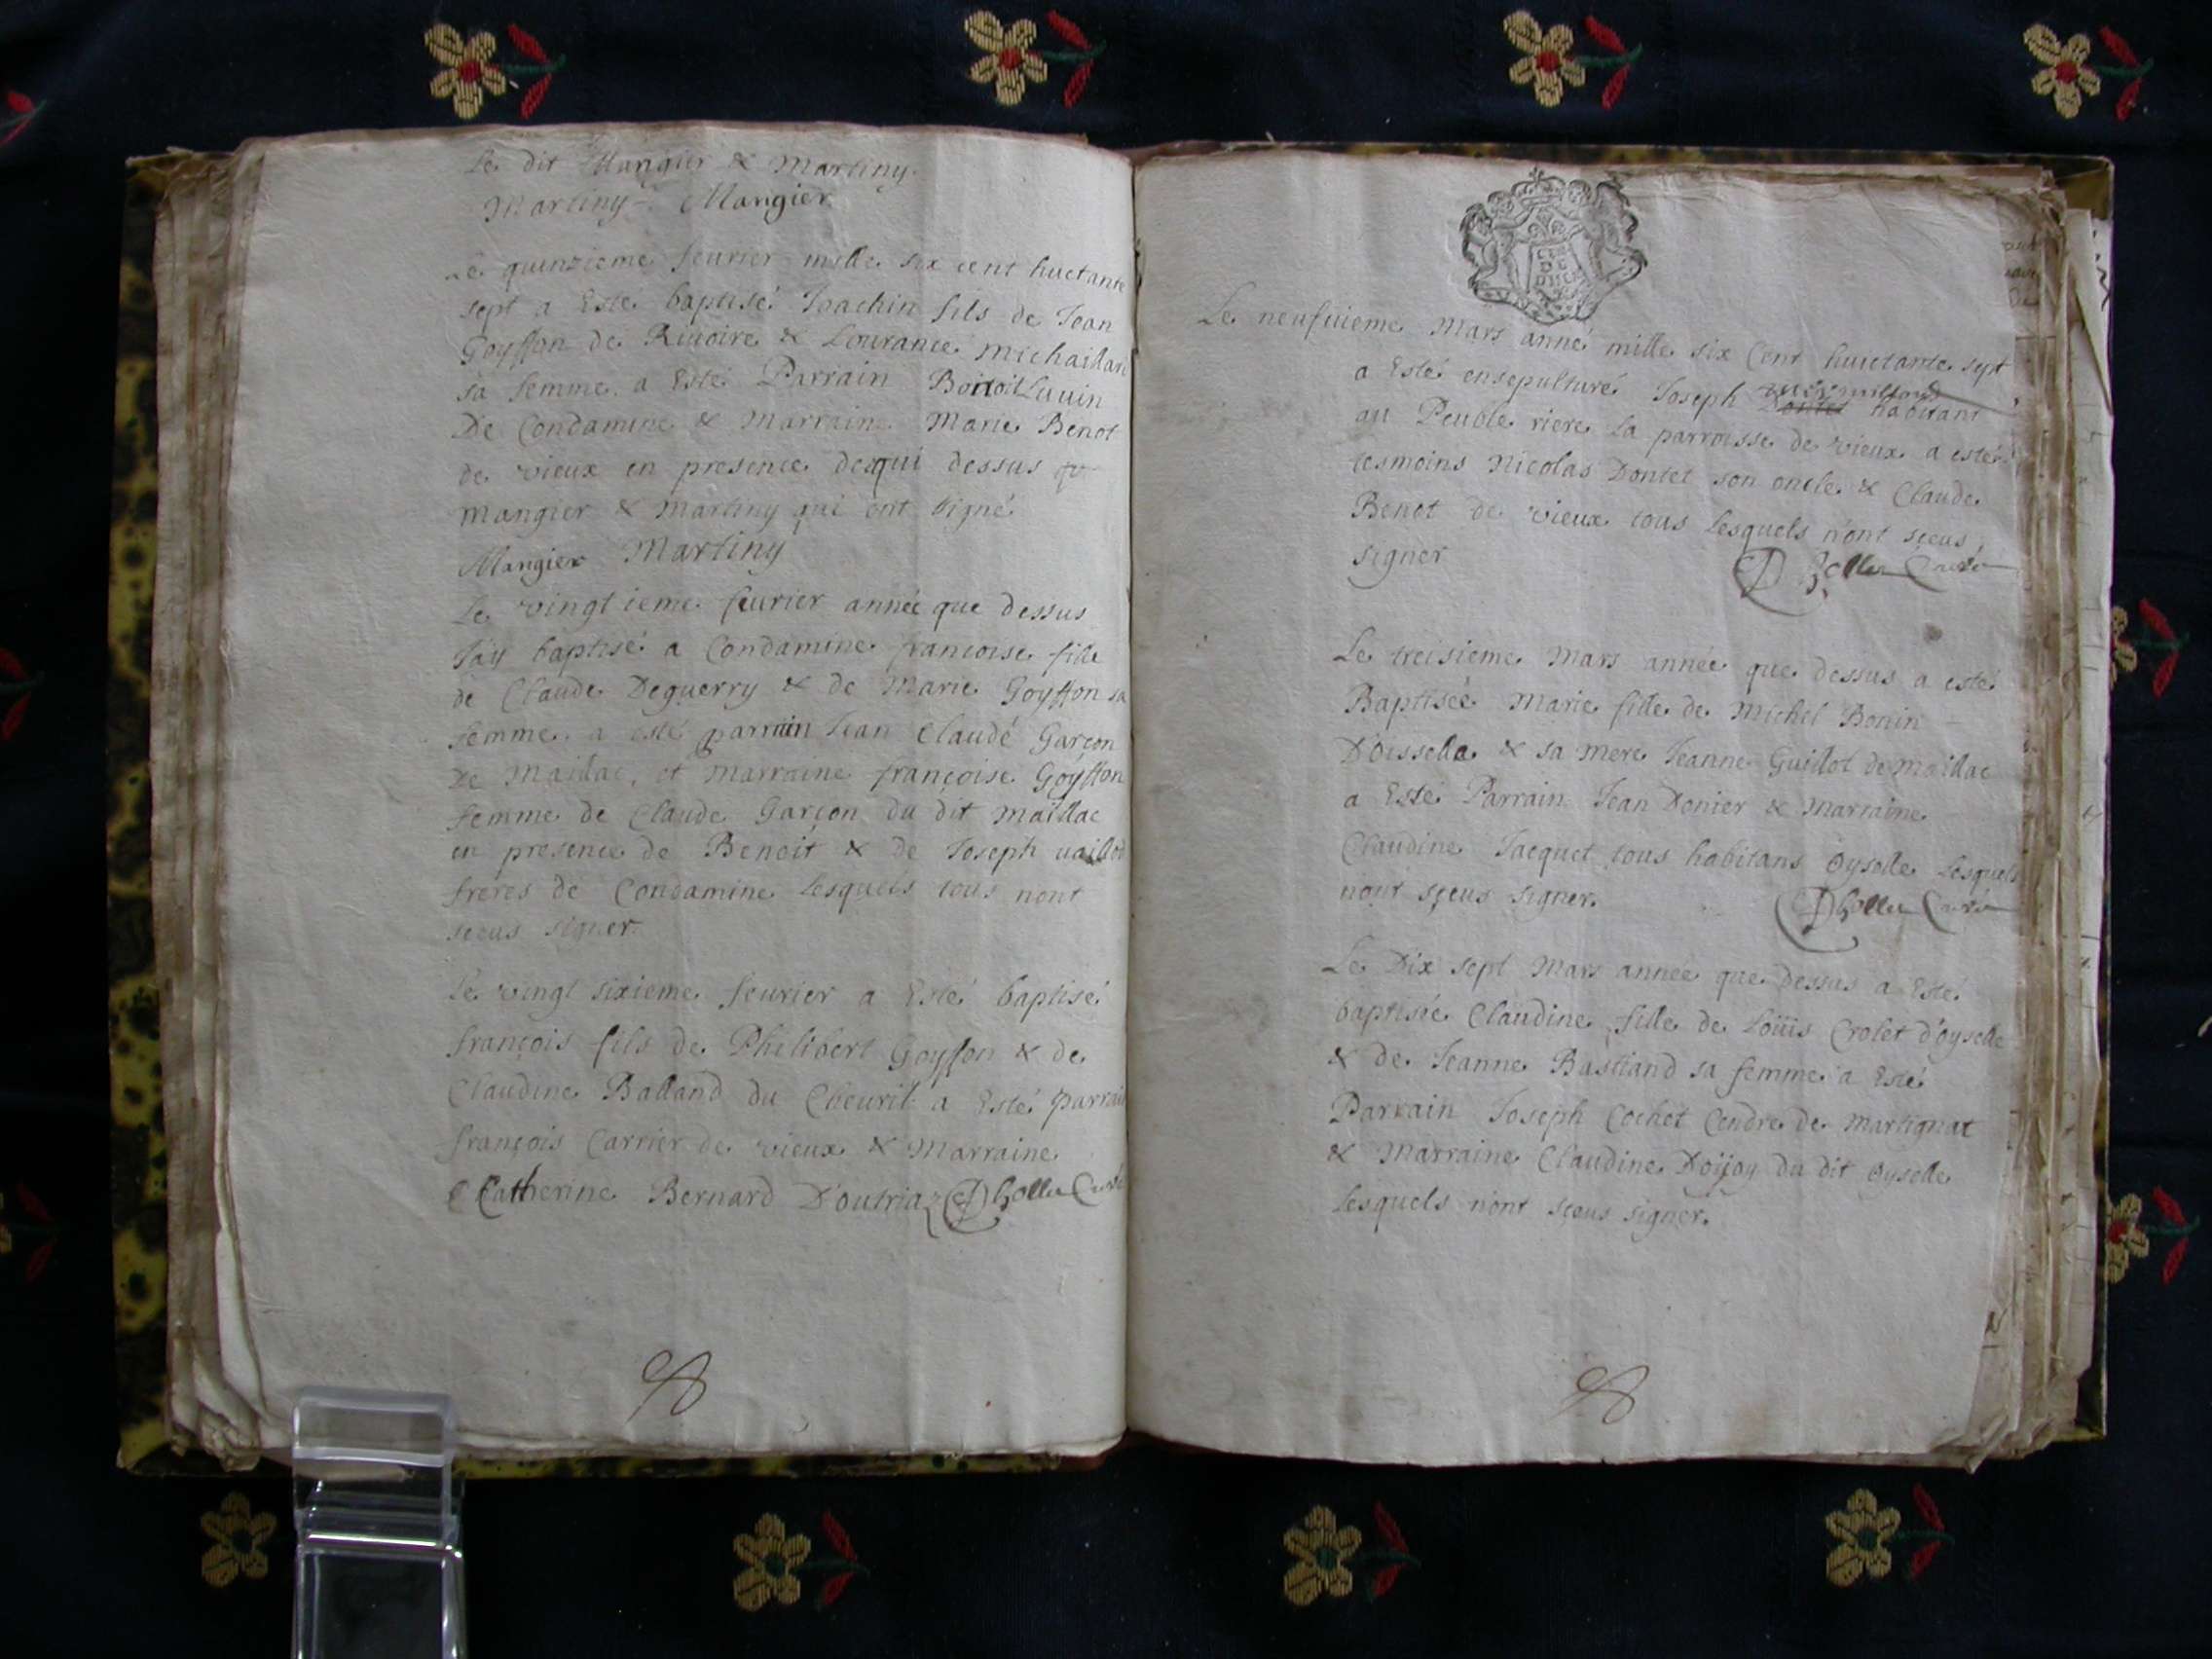 Le dit Mangier & Martiny.
Martiny Mangier
Le quinzieme feurier mille six cent huctante
sept a Esté baptisé Joachin fils de Jean
Goyffon de Riuoire & Lourance Michaillar
sa femme. a Esté Parrain Benoit Luuin
De Condamine & Marraine Marie Benot
de vieux en presence desqui dessus
Mangier & Martiny qui ont signé
Mangier Martiny
Le vingt ieme feurier année que dessus
J'ay baptisé a Condamine francoise fille
de Claude Deguerry & de Marie Goyffon sa
femme. a esté parrain Jean Claude Garçon
De Maillac, et Marraine françoise Goyffon
femme de Claude Garçon du dit Maillac
en presence de Benoit & de Joseph
freres de Condamine Lesquels tous nont
sceus signer.
Le vingt sixieme feurier a Esté baptisé
françois fils de Philibert Goyffon & de
Claudine Balland du Cheuril a Esté Parrain
françois Carrier de vieux & Marraine
Catherine Bernard D'outriaz Curé
Le neufuieme Mars anné mille six Cent huictante sept
a Esté ensepulturé Joseph habitant
au Peuble riere la parroisse de vieux a esté
tesmoins Nicolas Dontet son oncle & Claude
Benot de vieux tous Lesquels n'ont sceus
signer
Curé
Le treisieme Mars année que dessus a esté
Baptisée Marie fille de Michel Bonin
D'Oisselle & sa mere Jeanne Guillot de Maillac
a Esté Parrain Jean Donier & Marraine
Claudine Jacquet tous habitans Oyselle Lesquels
n'ont sçeus signer.
Curé
Le Dix sept Mars année que dessus a Esté
baptisée Claudine fille de Loüis Crolet d'oyselle
& de Jeanne Bastiand sa femme a Esté
Parrain Joseph Cochet Cendre de Martignat
& Marraine Claudine Doijoy du dit Oyselle
Lesquels n'ont sçeus signer.